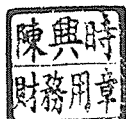 陳興時
財務用章